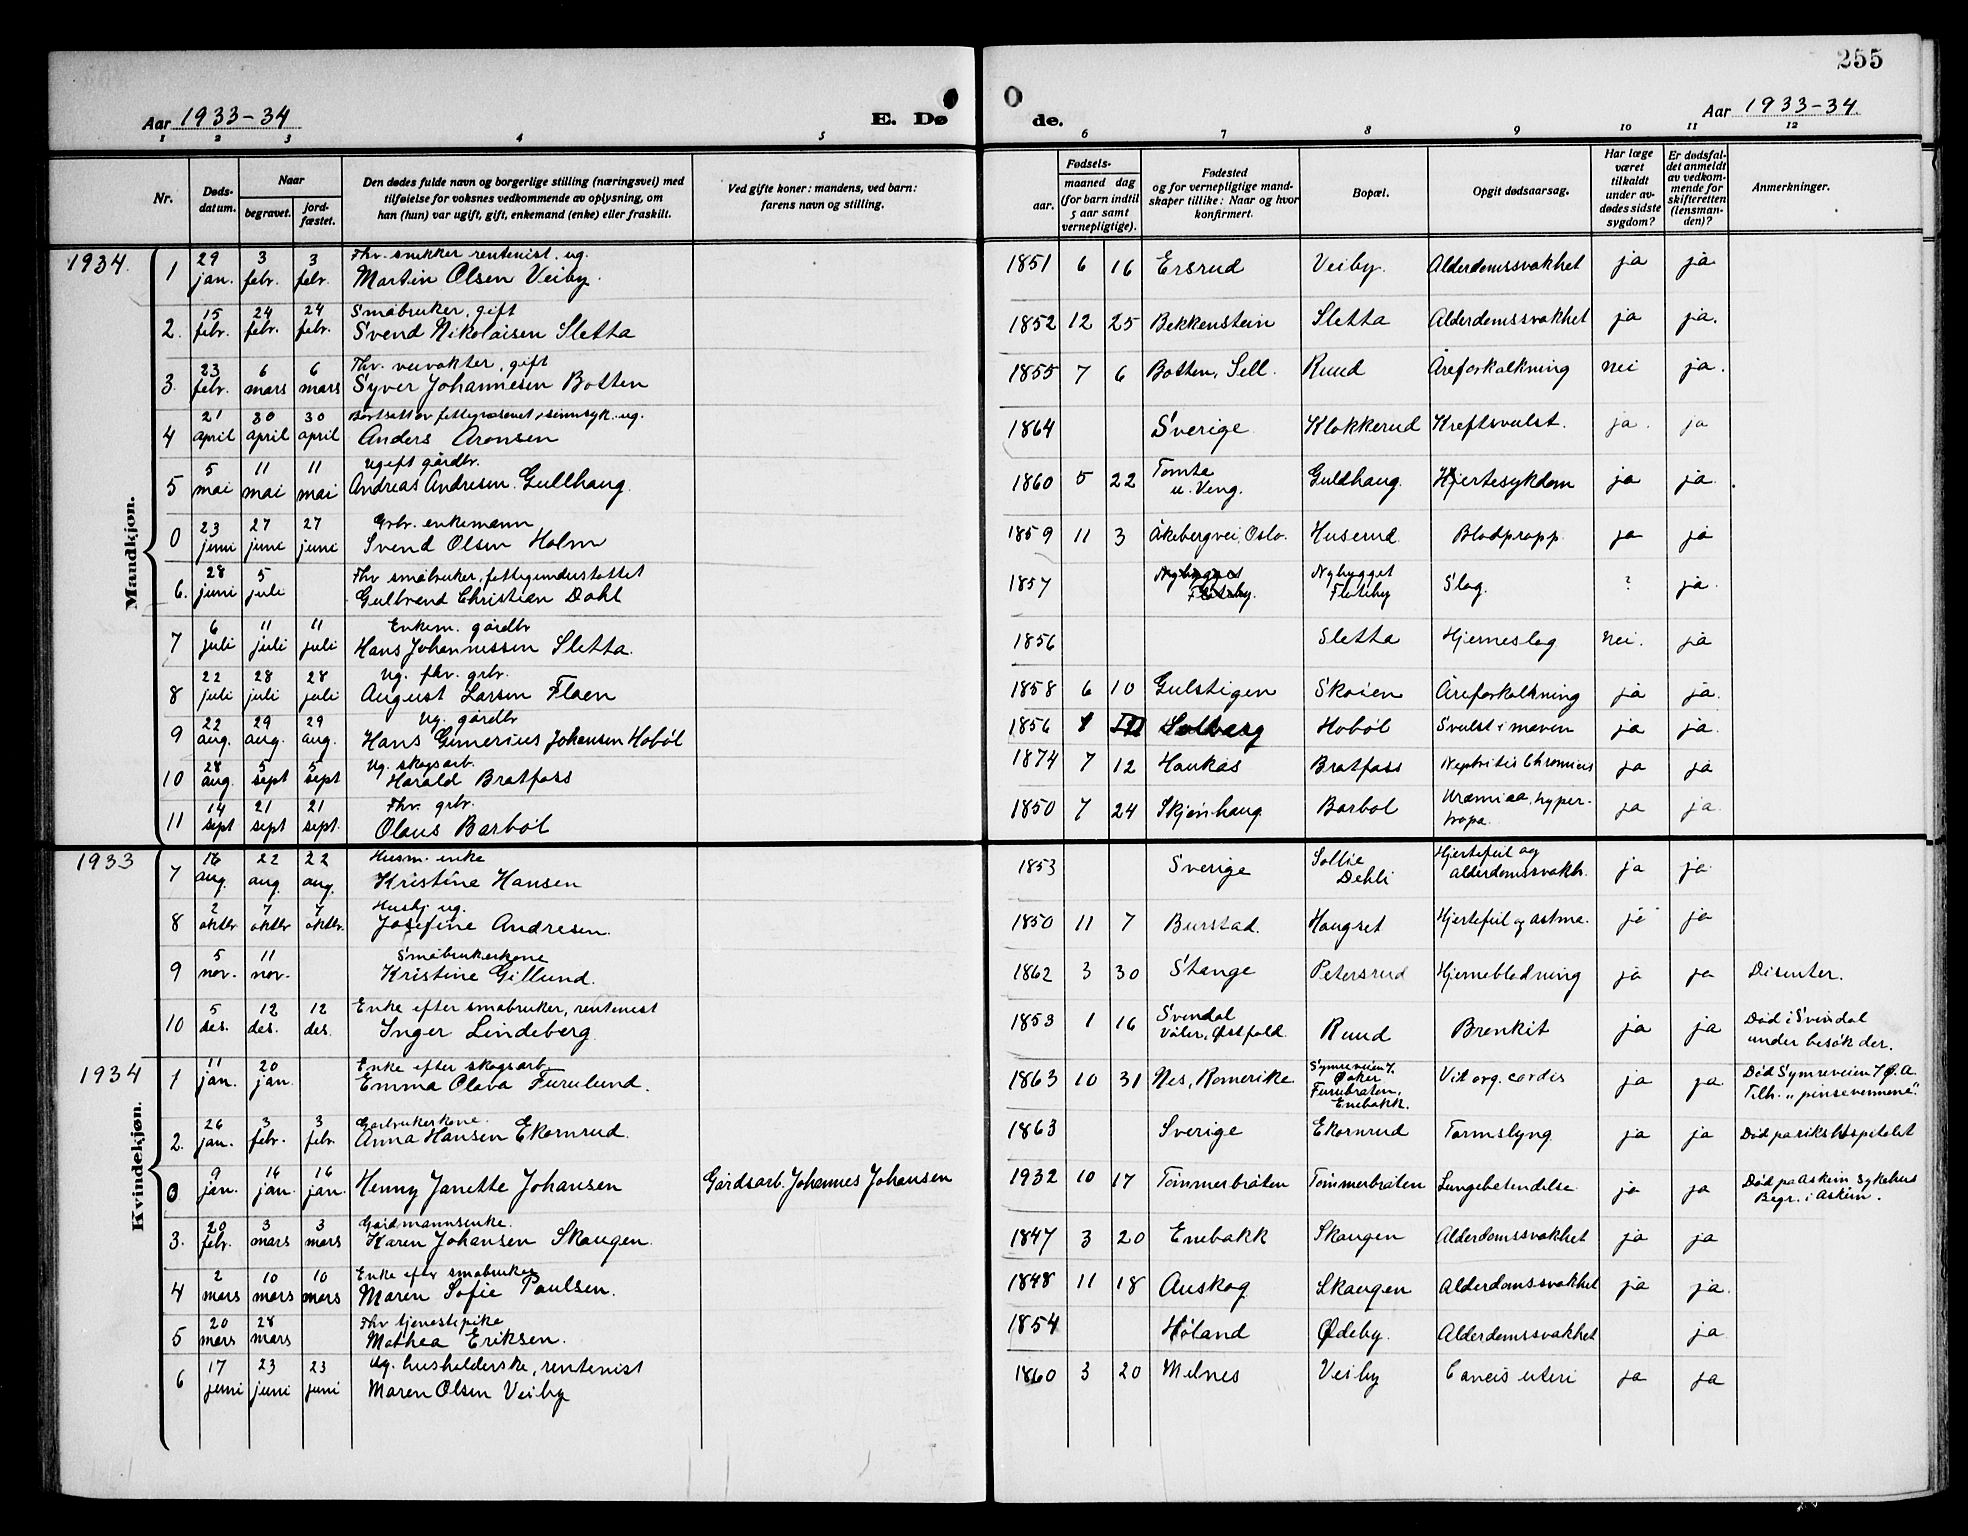 255
Aar 1933-34
E. Dø
de.
Aar 1933-34.
1 2 3 4 5 6 7 8 9 10 11 12
Nr.
Døds-
datum.
Naar
begravet.
jord-
fæstet.
Den dødes fulde navn og borgerlige stilling (næringsvei) med
tilføielse for voksnes vedkommende av oplysning, om
han (hun) var ugift, gift, enkemand (enke) eller fraskilt.
Ved gifte koner: mandens, ved barn:
farens navn og stilling.
Fødsels-
aar.
maaned dag
(for barn indtil
5 aar samt
vernepligtige).
Fødested
og for vernepligtige mand-
skaper tillike: Naar og hvor
konfirmert.
Bopæl.
Opgit dødsaarsag.
Har læge
været
tilkaldt
under av-
dødes sidste
sygdom?
Er dødsfal-
det anmeldt
av vedkom-
mende for
skifteretten
(lensman-
den)?
Anmerkninger.
Mandkjøn.
1934.
1 29 jan. 3 febr. 3 febr. Fhv. snekker rentenist, ug.
Martin Olsen Veiby. 1851 6 16 Ersrud Veiby. Alderdomssvakhet ja ja.
2. 15 febr. 24 febr. 24 febr. Småbruker, gift
Svend Nikolaisen Sletta 1852 12 25 Bekkenstein Sletta Alderdomssvakhet ja ja.
3. 23 febr. 6 mars 6 mars Fhv. veivokter, gift
Syver Johannesen Botten 1855 7 6 Botten, Sell. Ruud Åreforkalkning nei ja.
4 21 april 30 april 30 april Bortsatt av fattigvesenet, sinnsyk. ug.
Anders Aronsen 1864 Sverige Klokkerud Kreftsvulst. ja. ja
5 5 mai 11 mai 11 mai Ugift gårdbr.
Andreas Andresen Gullhaug 1860 5 22 Tomta
u. Veng. Guldhaug. Hjertesykdom ja ja.
0 23 juni 27 juni 27 juni Grbr. enkemann
Svend Olsen Holm 1859 11 3 Åkebergvei, Oslo. Huserud Blodpropp. ja ja
6. 28 juni 5 juli Fhv småbruker, fattigunderstøttet
Gulbrand Christian Dahl 1857 Nybygget
Flateby. Nybygget
Flateby Slag. ? ja.
7 6 juli 11 juli 11 juli Enkem. gårdbr
Hans Johannessen Sletta. 1856 Sletta Hjerneslag nei. ja
8 22 juli 28 juli 28 juli Ug. fhv. grbr.
August Larsen Flaen 1858 6 10 Gulstigen Skøien Åreforkalkning ja ja.
9 22 aug. 29 aug. 29 aug. Ug. gårdbr
Hans Gunerius Johansen Hobøl 1856 Solberg Hobøl Svulst i maven ja ja.
10 28 aug. 5 sept 5 sept Ug. skogsarb.
Harald Bratfoss 1874 7 12 Haukås Bratfoss Nephritis Chronicus ja ja
11 14 sept 21 sept 21 sept. Fhv. grbr.
Olaus Barbøl 1850 7 24 Skjønhaug Barbøl Uræmiaa, hyper-
tropa. ja ja.
Kvindekjøn.
1933
7 16 aug. 22 aug. 22 aug. Husm. enke
Kristine Hansen 1853 Sverige Sollie
Dehli Hjertefeil og
alderdomssvakh. ja ja
8 2 oktbr 7 oktbr 7 oktbr. Hushj ug.
Josefine Andresen. 1850 11 7 Burstad. Haugset Hjertefeil og astma. ja ja
9 5 nov. 11 nov. Småbrukerkone
Kristine Gillund. 1862 3 30 Stange Petersrud Hjerneblødning ja ja Disenter.
10 5 des. 12 des. 12 des. Enke efter småbruker, rentenist
Inger Lindeberg 1853 1 16 Svendal
Våler, Østfold Ruud Bronkit ja ja Død i Svindal
under besøk der.
1934
1 11 jan. 20 jan. Enke efter skogsarb.
Emma Olava Furulund. 1863 10 31 Nes, Romerike Symreveien 7.
Øaker
Furubråten,
Enebakk. Vit. org. cordis ja ja. Død Symreveien 7 Ø.A.
Tilh. „pinsevennene".
2. 26 jan. 3 febr. 3 febr Gårbrukerkone.
Anna Hansen Ekornrud. 1863 Sverige Ekornrud Tarmslyng ja ja Død på rikshospitalet
0 9 jan. 16 jan. 16 jan. Henny Janette Johansen Gårdsarb. Johannes Johansen 1932 10 17 Tømmerbråten Tømmerbråten Lungebetendelse ja ja Død på Askim sykehus
Begr. i Askim.
3. 20 febr. 3 mars 3 mars Gårdmannsenke.
Karen Johansen Skaugen. 1847 3 20 Enebakk Skaugen Alderdomssvakhet ja ja
4 2 mars 10 mars 10 mars Enke eftr småbruker
Maren Sofie Paulsen. 1848 11 18 Auskog Skaugen Alderdomssvakhet ja ja.
5 20 mars 28 mars Fhv tjenestepike
Mathea Eriksen. 1854 Høland Ødeby. Alderdomssvakhet ja
6 17 juni 23 juni 23 juni Ug. husholderske, rentenist
Maren Olsen Veiby 1860 3 20 Melnes Veiby Cancis uteri ja ja